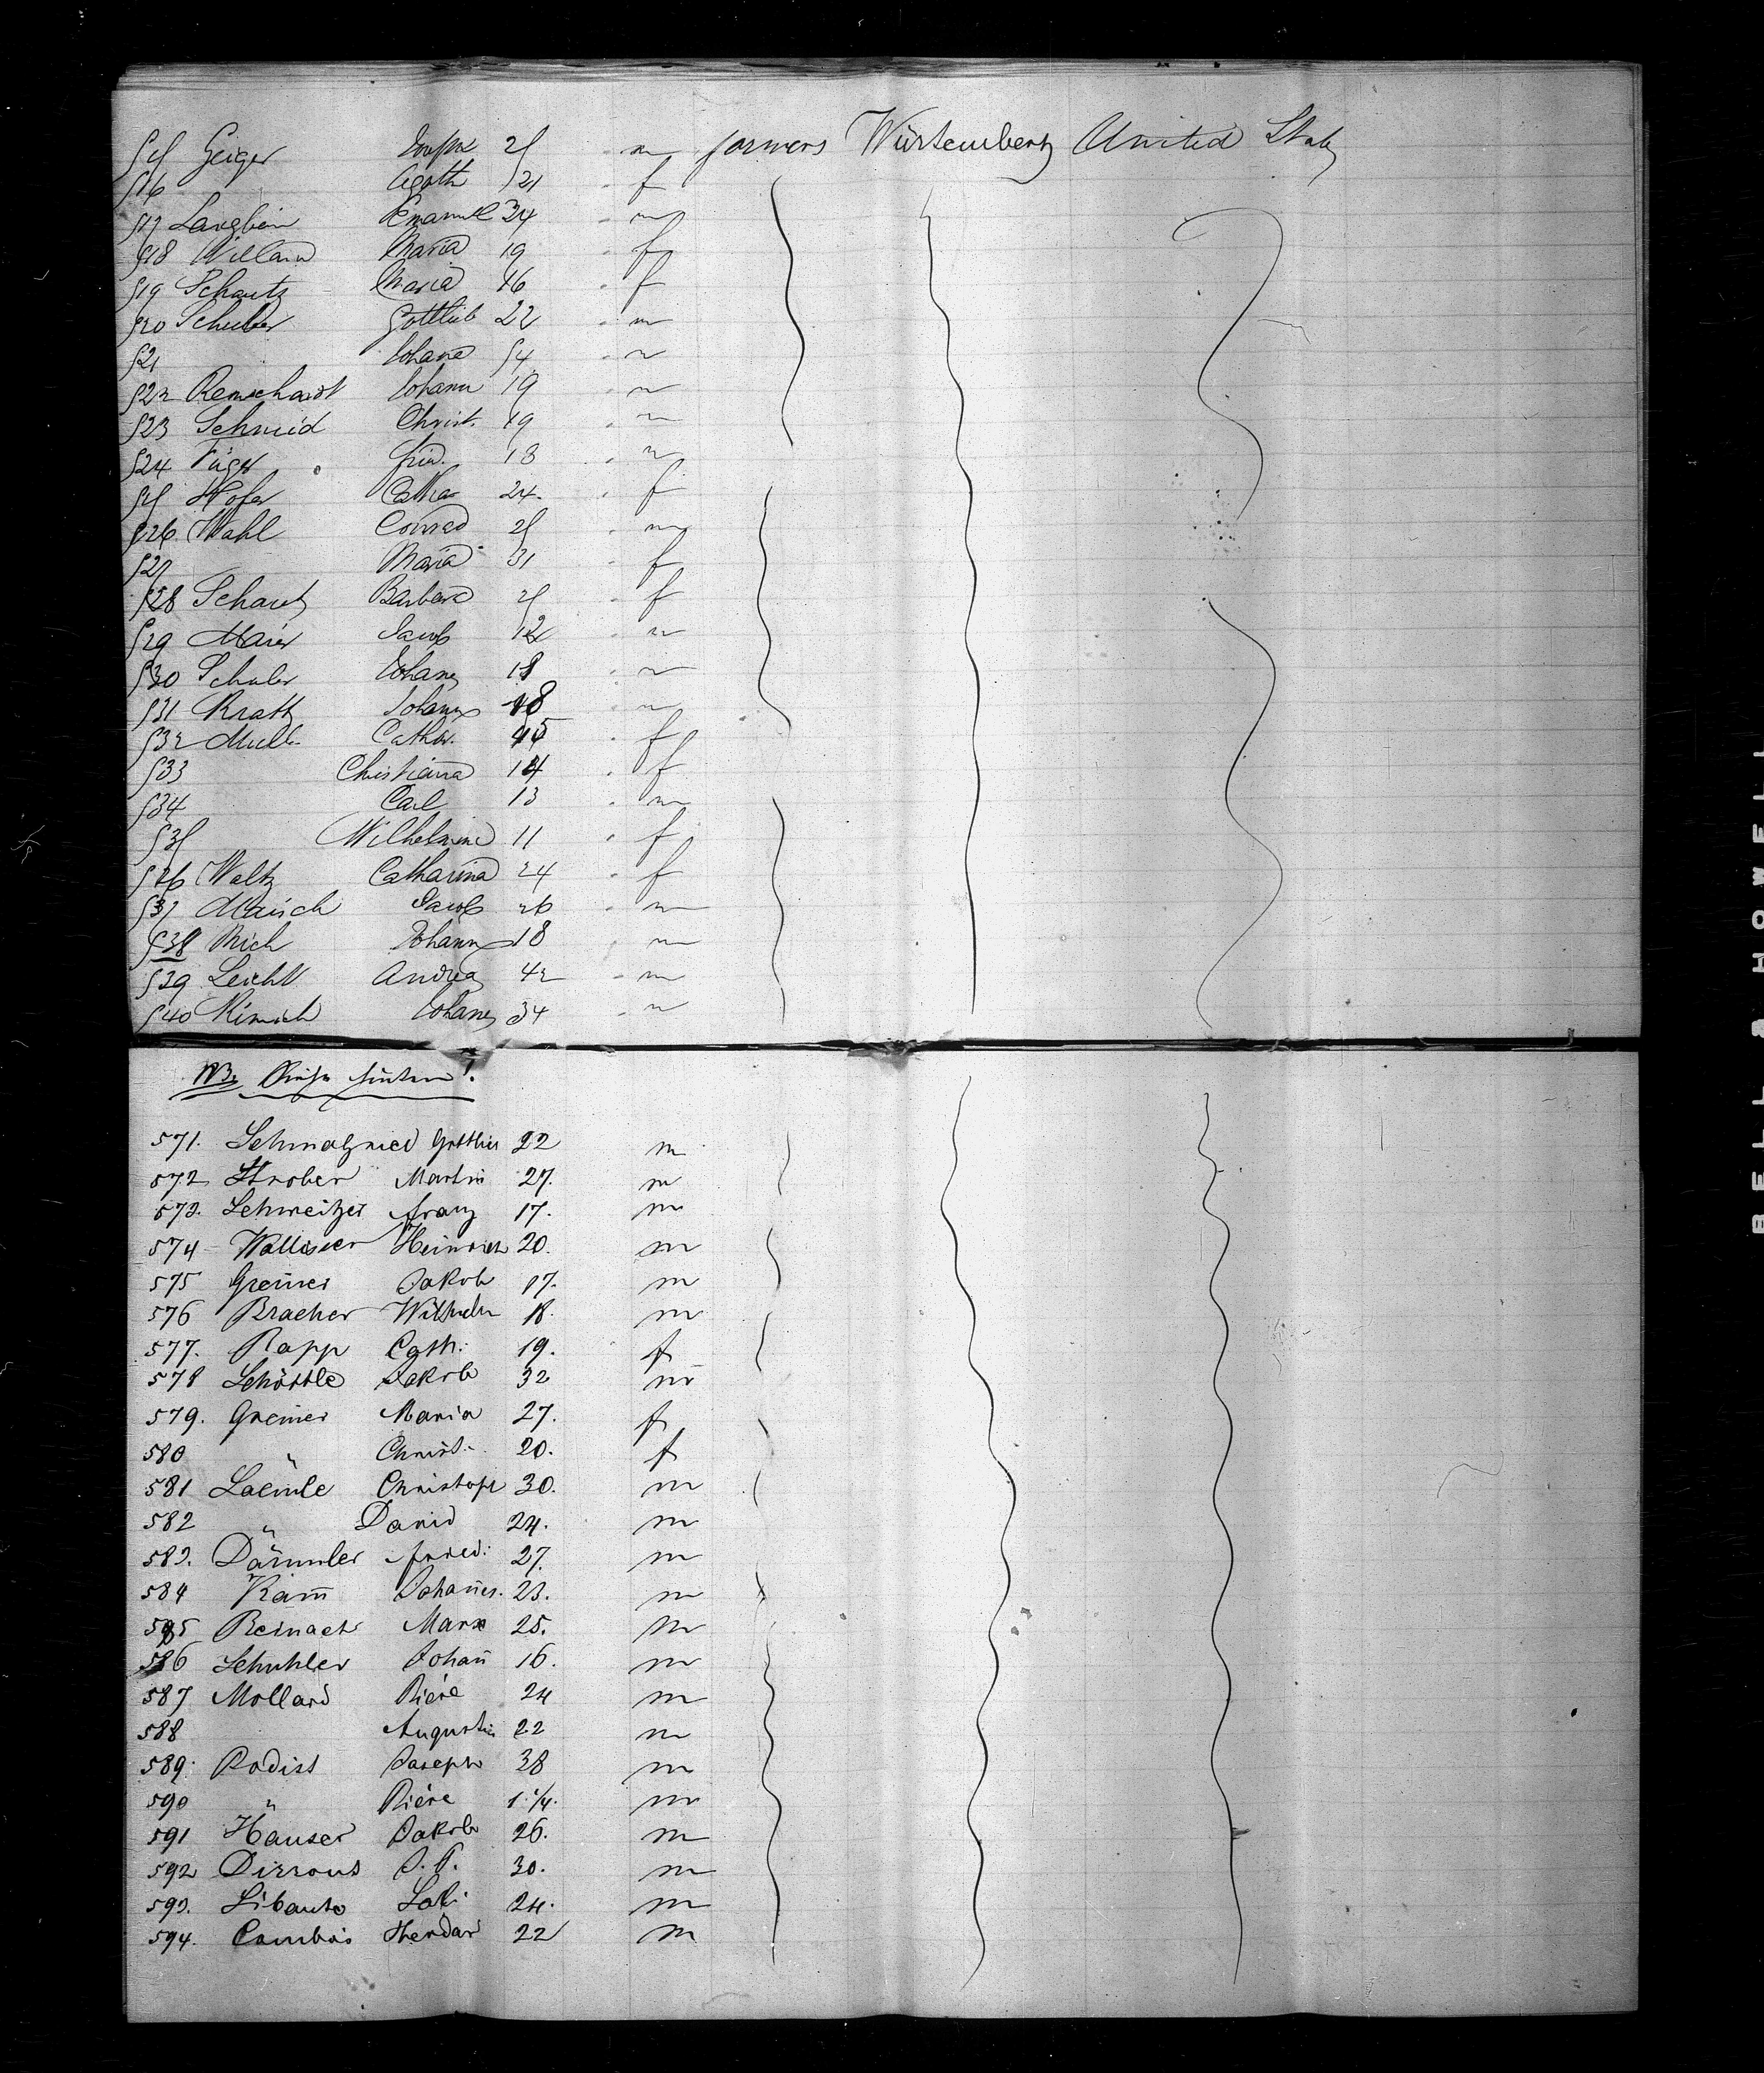 515 Geiger 25 m farmers Würtemberg United States
516 Agath 21 f
517 Langbein Emanuel 34 m
518 Willand Maria 19 f
519 Schautz Maria 16 f
520 Schuler Gottlieb 22 m
521 Johann 54 m
522 Remschardt Johann 19 m
523 Schmid Christ. 19 m
524 Frid. 18 m
525 Hofer Catha 24. f
526 Wahl Conrad 25 m
527 Maria 31 f
528 Schautz Barbara 25 f
529 Maier Jacob 12 m
530 Schuler Johans 18 m
531 Kratt Johann 18 m
532 Mull. Cathar. 45 f
533 Christiana 14 f
534 Carl 13 m
535 Wilhelmine 11 f
536 Waltz Catharina 24 f
537 Maisch Jacob 26 m
538 Mich Johann 18 m
539 Leicht Andreas 42 m
540 Johans 34 m
NB.
571. Schmalzried Gottlieb 22 m
572 Strober Martin 27. m
573. Schweitzer Franz 17. m
574 Walliser Heinrich 20. m
575 Greiner Jakob 17. m
576 Bracher Wilhelm 18. m
577. Rapp Cath: 19. f
578 Schöttle Jakob 32 m
579. Greiner Maria 27. f
580 " Christ. 20. f
581 Laemle Christoph 30. m
582 " David 24. m
583. Dämmler Fried: 27. m
584 Kam̄ Johan̄es. 23. m
585 Reinach Marx 25. m
586 Schuhler Johan̄ 16. m
587 Mollard Piére 24 m
588 Augustin 22 m
589. Rodist Joseph 38 m
590 " Piére 1 1/4. m
591 Hauser Jakob 26. m
592 Dirrous J. P. 30. m
593. Libauts 24. m
594. Combois 22 m
BELL & HOWELL